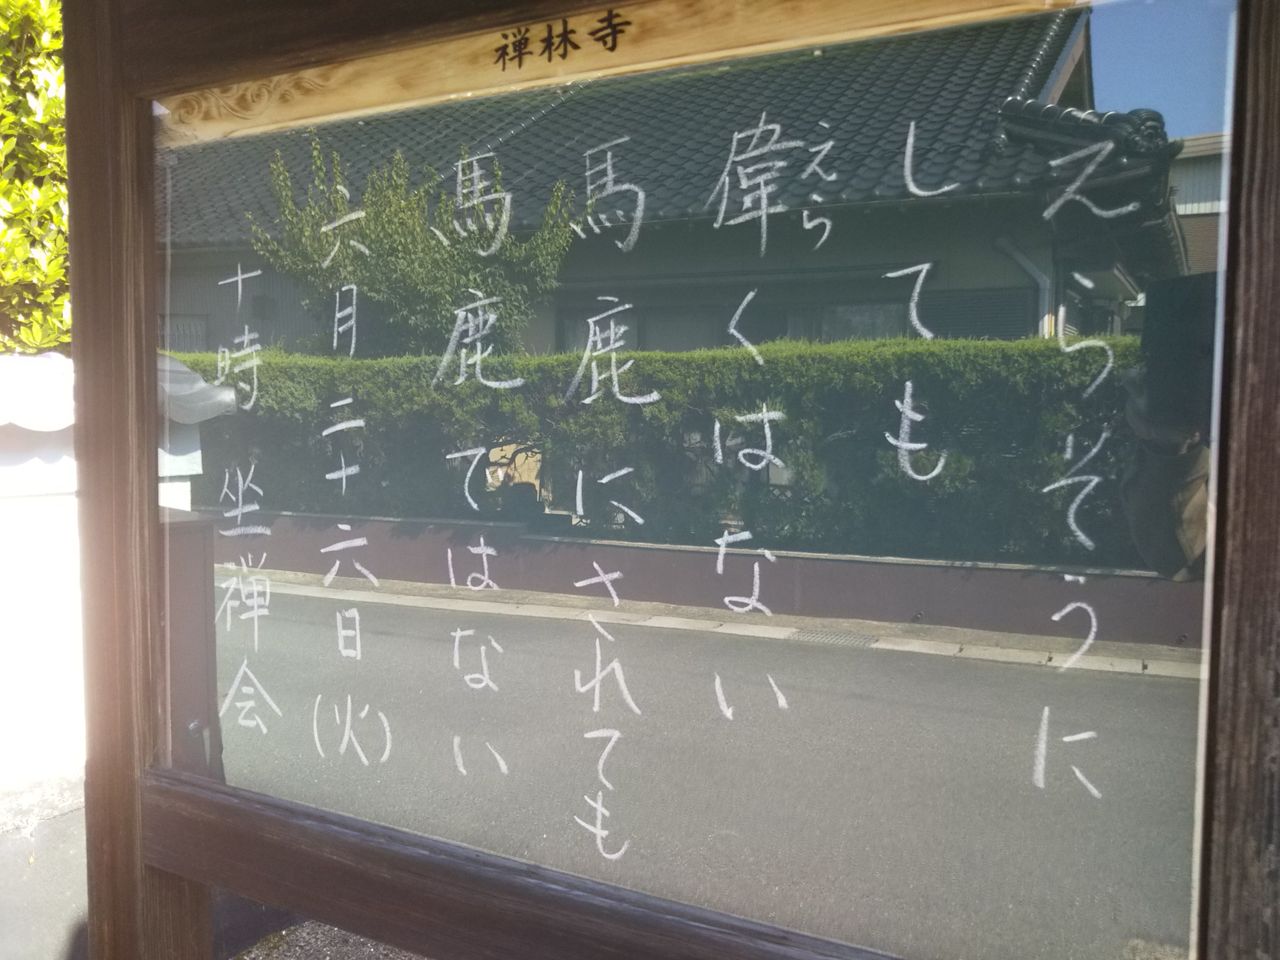 禅林寺
えらそうに
しても
偉くはない
えら
馬鹿にされても
馬鹿てはない
六月二十六日(火)
十時 坐禅会